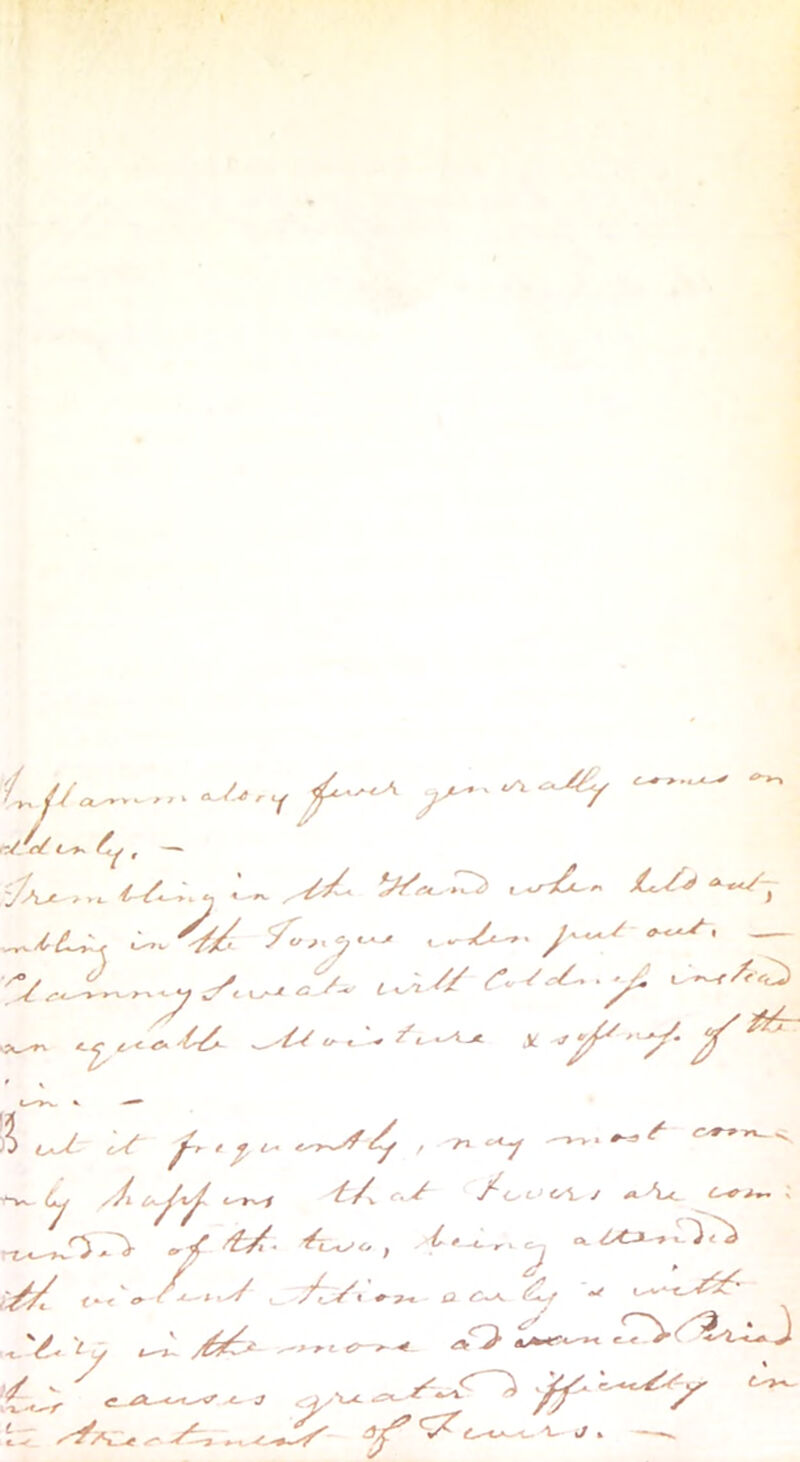 Inflammatory fever generally comes on
ddenly, —
Trembling in the Hand when held out,
mbling in the Tongue when put out. —
Clammy Sweats with Coldness instead
an equable Moisture & softness of the
in. —
But it frequently, nay most com=
nly happens that Fevers are com:
unded of the two, being attended
ith violent Action early & with
ility in the more advanced Period
his causes greater Difficulty in
he treatment of Fevers. —